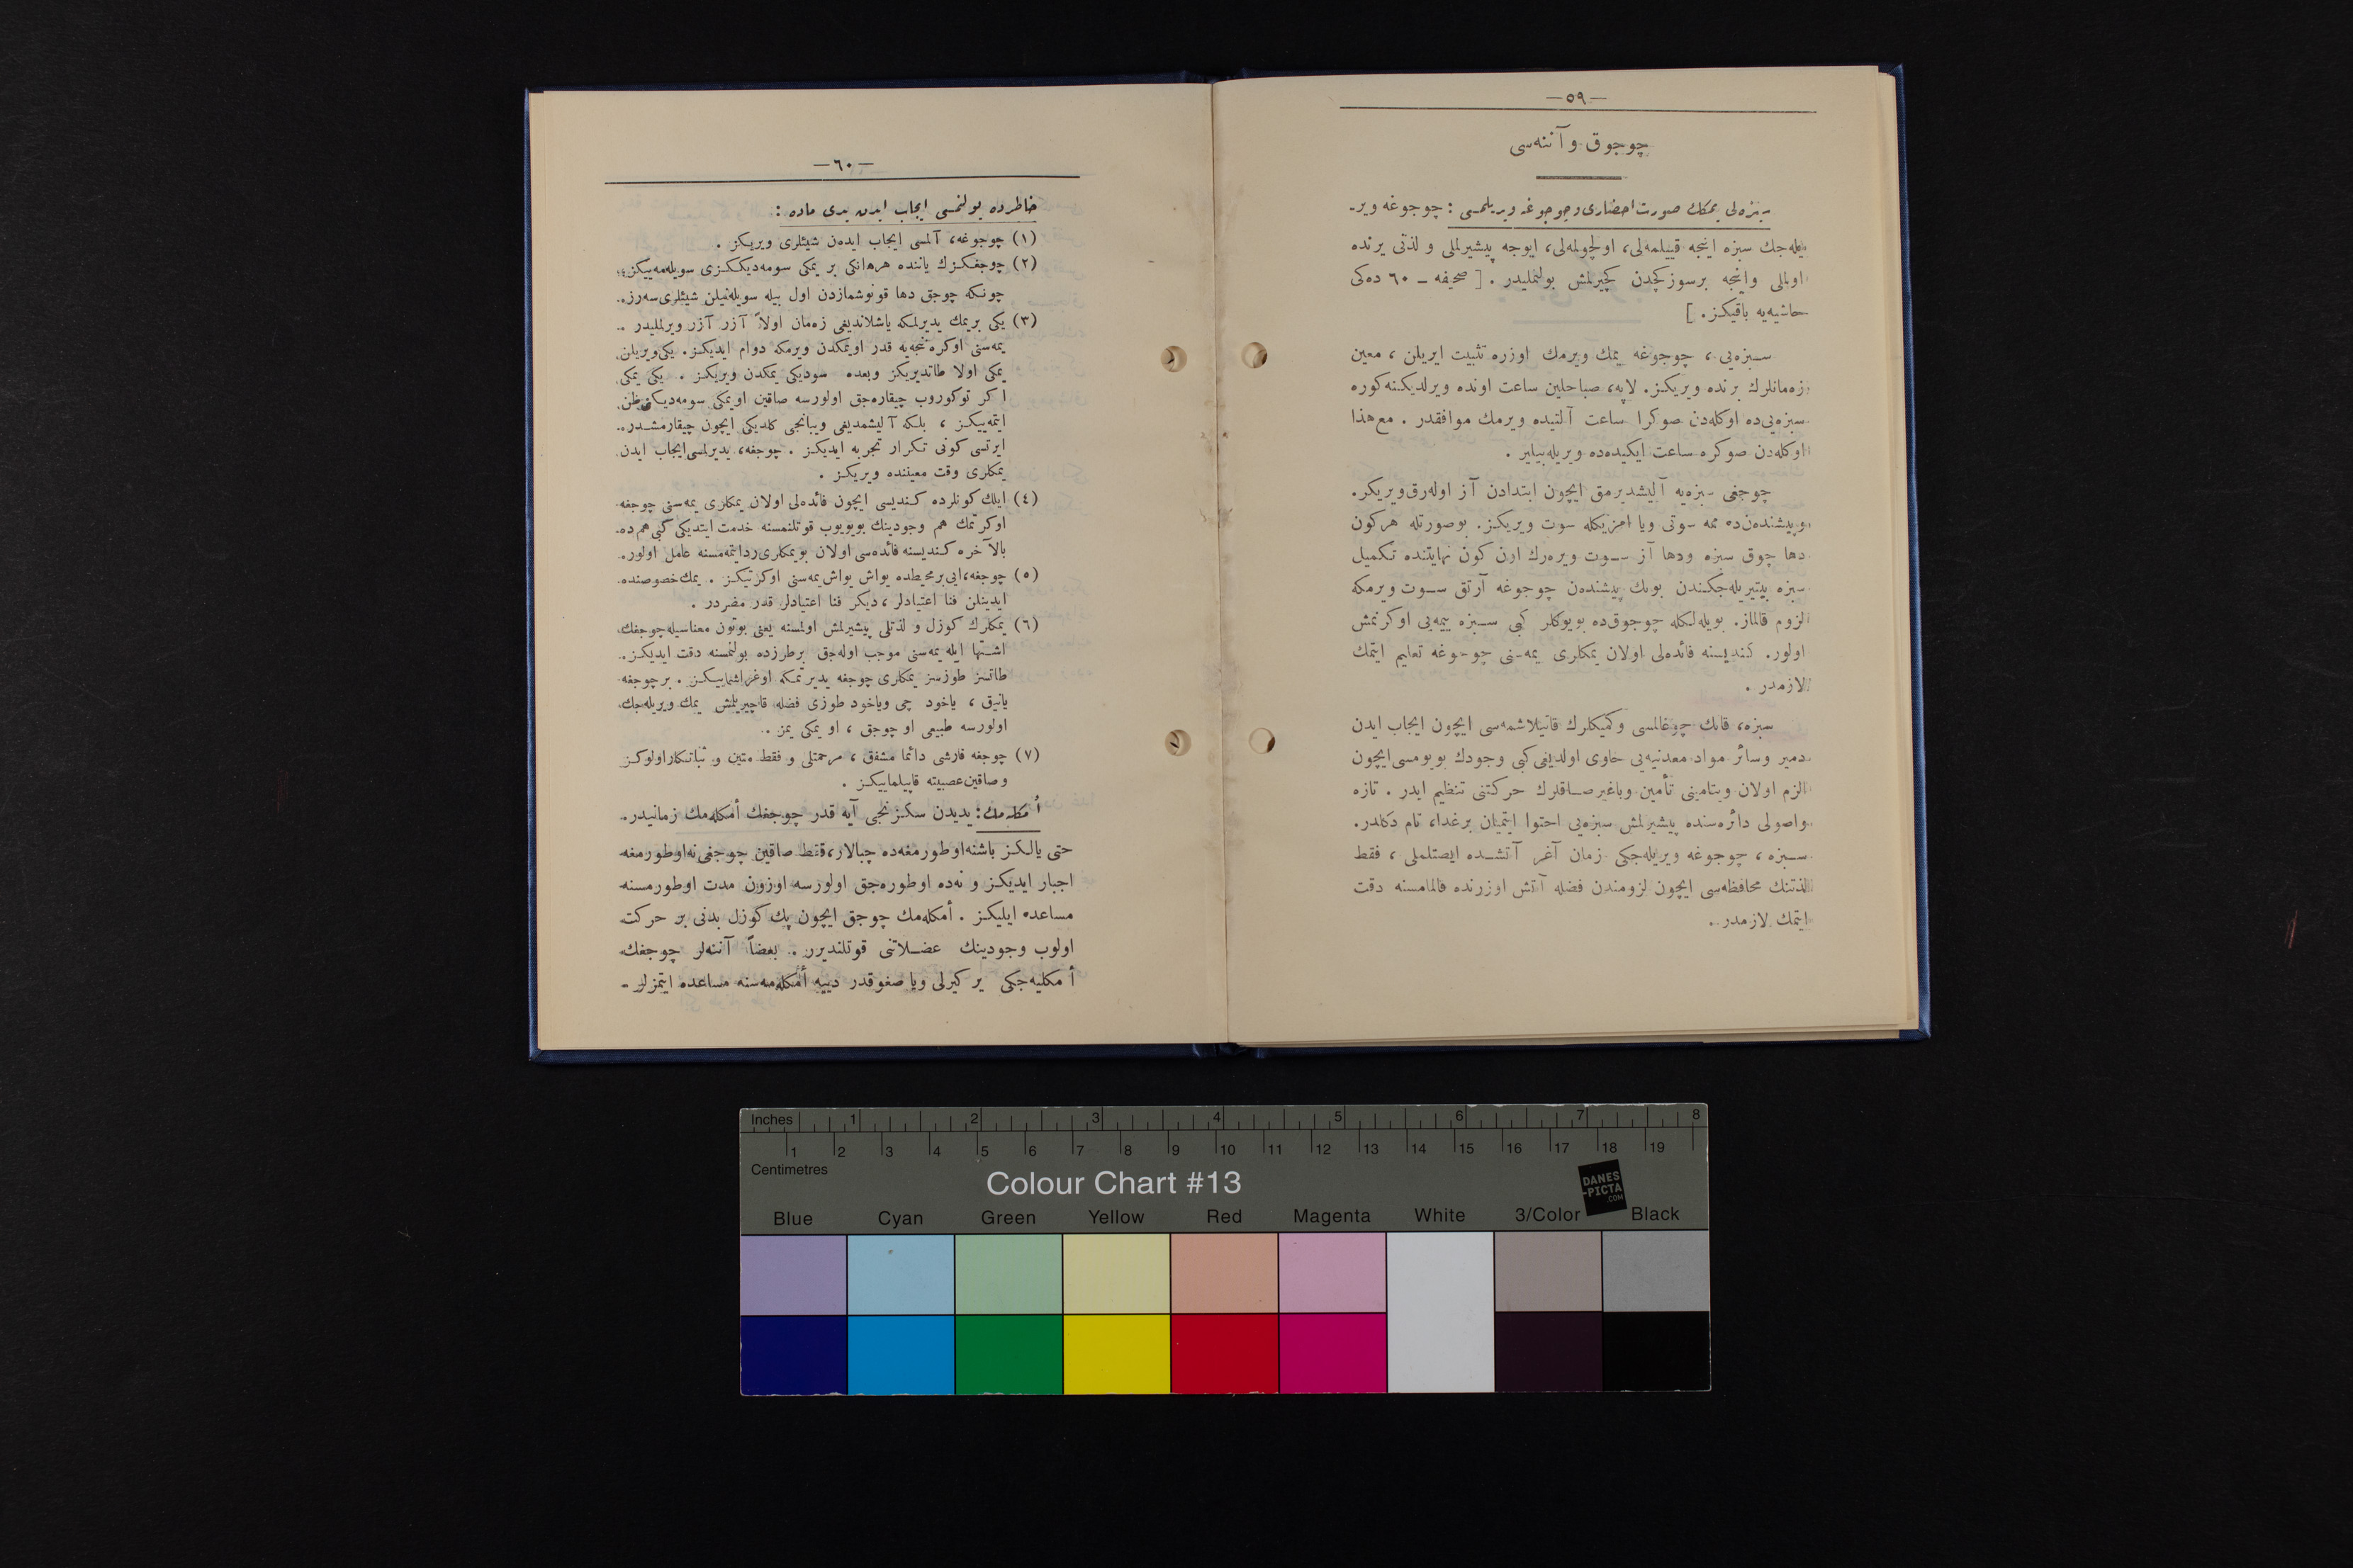 —٥٩—
چوجوق و آننه‌سی
سبزه‌لی یمكك صورت احضاری وچوجوغه ویریلمسی : چوجوغه ویر-
یله‌جك سبزه اینجه قییلمه‌لی، اولچولمه‌لی، ایوجه پیشیرلملی و لذتی یرنده
اوملالی واینجه برسوزكچدن كچیرلمش بولنملیدر . [ صحیفه — ٦٠ ده‌كی
حاشیه‌یه باقیكز. ]
سبزه‌یی ، چوجوغه یمك ویرمك اوزره تثبیت ایریلن ، معین
زه‌مانلرك برنده ویریكز. لاپه، صباحلین ساعت اونده ویرلدیكنه كوره
سبزه‌یی‌ده اوكله‌دن صوكرا ساعت آلتیده ویرمك موافقدر . مع‌هذا
اوكله‌دن صوكره ساعت ایكیده‌ده ویریله‌بیلیر .
چوجغی سبزه‌یه آلیشدیرمق ایچون ابتدادن آز اوله‌رق‌ویریكز.
وپیشنده‌ن‌ده ممه سوتی ویا امزیكله سوت ویریكز. بوصورتله هركون
دها چوق سبزه ودها آز سوت ویره‌رك اون كون نهایتنده تكمیل
سبزه یتیریله‌جكندن بونك پیشنده‌ن چوجوغه آرتق سوت ویرمكه
لزوم قالماز. بویله‌لكله چوجوق‌ده بویوكلر كبی سبزه ییمه‌یی اوكرنمش
اولور. كندیسنه فائده‌لی اولان یمكلری یمه‌سنی چوجوغه تعلیم ایتمك
لازمدر .
سبزه، قانك چوغالمسی وكمیكلرك قاتیلاشمه‌سی ایچون ایجاب ایدن
دمیر وسائر مواد معدنیه‌یی حاوی اولدیغی كبی وجودك بویومسی‌ایچون
الزم اولان ویتامینی تأمین وباغیرصاقلرك حركتنی تنظیم ایدر . تازه
واصولی دائره‌سنده پیشیرلمش سبزه‌یی احتوا ایتمیان برغدا، تام دكلدر.
سبزه ، چوجوغه ویریله‌جكی زمان آغر آتشده ایصتلملی ، فقط
لذتنك محافظه‌سی ایچون لزومندن فضله آتش اوزرنده قالمامسنه دقت
ایتمك لازمدر .
—٦٠—
خاطرده بولنمسی ایجاب ایدن یدی ماده :
(١) چوجوغه، آلمسی ایجاب ایده‌ن شیئلری ویریكز .
(٢) چوجغكزك یاننده هرهانكی بر یمكی سومه‌دیككزی سویله‌مه‌ییكز؛
چونكه چوجق دها قونوشمازدن اول بیله سویله‌نیلن شیئلری‌سه‌زر.
(٣) یكی بریمك یدیرلمكه یاشلاندیغی زه‌مان اولاً آزر آزر ویرلملیدر .
یمه‌سنی اوكره‌نجه‌یه قدر اویمكدن ویرمكه دوام ایدیكز. یكی‌ویریلن
یمكی اولا طاتدیریكز وبعده سودیكی یمكدن ویریكز . یكی یمكی
اكر توكوروب چیقاره‌جق اولورسه صاقین اویمكی سومه‌دیكنی‌ظن
ایتمه‌ییكز ، بلكه آلیشمدیغی ویبانجی كلدیكی ایچون چیقارمشدر.
ایرتسی كونی تكرار تجربه ایدیكز . چوجغه، یدیرلمسی‌ایجاب ایدن
یمكلری وقت معیننده ویریكز .
(٤) ایلك كونلرده كندیسی ایچون فائده‌لی اولان یمكلری یمه‌سنی چوجغه
اوكرتمك هم وجودینك بویویوب قوتلنمسنه خدمت ایتدیكی كبی هم‌ده
بالآخره كندیسنه فائده‌سی اولان بویمكلری‌ردایتمه‌مسنه عامل اولور.
(٥) چوجغه، ایی‌برمحیطده یواش یواش‌یمه‌سنی اوكرتیكز . یمك‌خصوصنده
ایدینلن فنا اعتیادلر ، دیكر فنا اعتیادلر قدر مضردر .
(٦) یمكلرك كوزل و لذتلی پیشیرلمش اولمسنه یعنی بوتون معناسیله‌چوجغك
اشتها ایله یمه‌سنی موجب اوله‌جق برطرزده بولنمسنه دقت ایدیكز.
طاتسز طوزسز یمكلری چوجغه یدیرتمكه اوغراشماییكز . برچوجغه
یانیق ، یاخود چی ویاخود طوزی فضله قاچیریلمش یمك ویریله‌جك
اولورسه طبیعی او چوجق ، او یمكی یمز .
(٧) چوجغه قارشی دائما مشفق ، مرحمتلی و فقط متین و ثباتكاراولوكز
وصاقین‌عصبیته قاپیلماییكز .
أمكله‌مك: یدیدن سكزنجی آیه قدر چوجغك أمكله‌مك زمانیدر.
حتی یالكز باشنه‌اوطورمغه‌ده چبالار،فقط صاقین چوجغی‌نه‌اوطورمغه
اجبار ایدیكز و نه‌ده اوطوره‌جق اولورسه اوزون مدت اوطورمسنه
مساعده ایلیكز . أمكله‌مك چوجق ایچون پك كوزل بدنی بر حركت
اولوب وجودینك عضلاتنی قوتلندیرر . بعضاً آننه‌لر چوجغك
أمكلیه‌جكی یر كیرلی ویا صغوقدر دییه أمكله‌مه‌سنه مساعده ایتمزلر-
Inches 1 2 3 4 5 6 7 8
1 2 3 4 5 6 7 8 9 10 11 12 13 14 15 16 17 18 19
Centimetres
Colour Chart #13
DANES
-PICTA
.COM
Blue Cyan Green Yellow Red Magenta White 3/Color Black